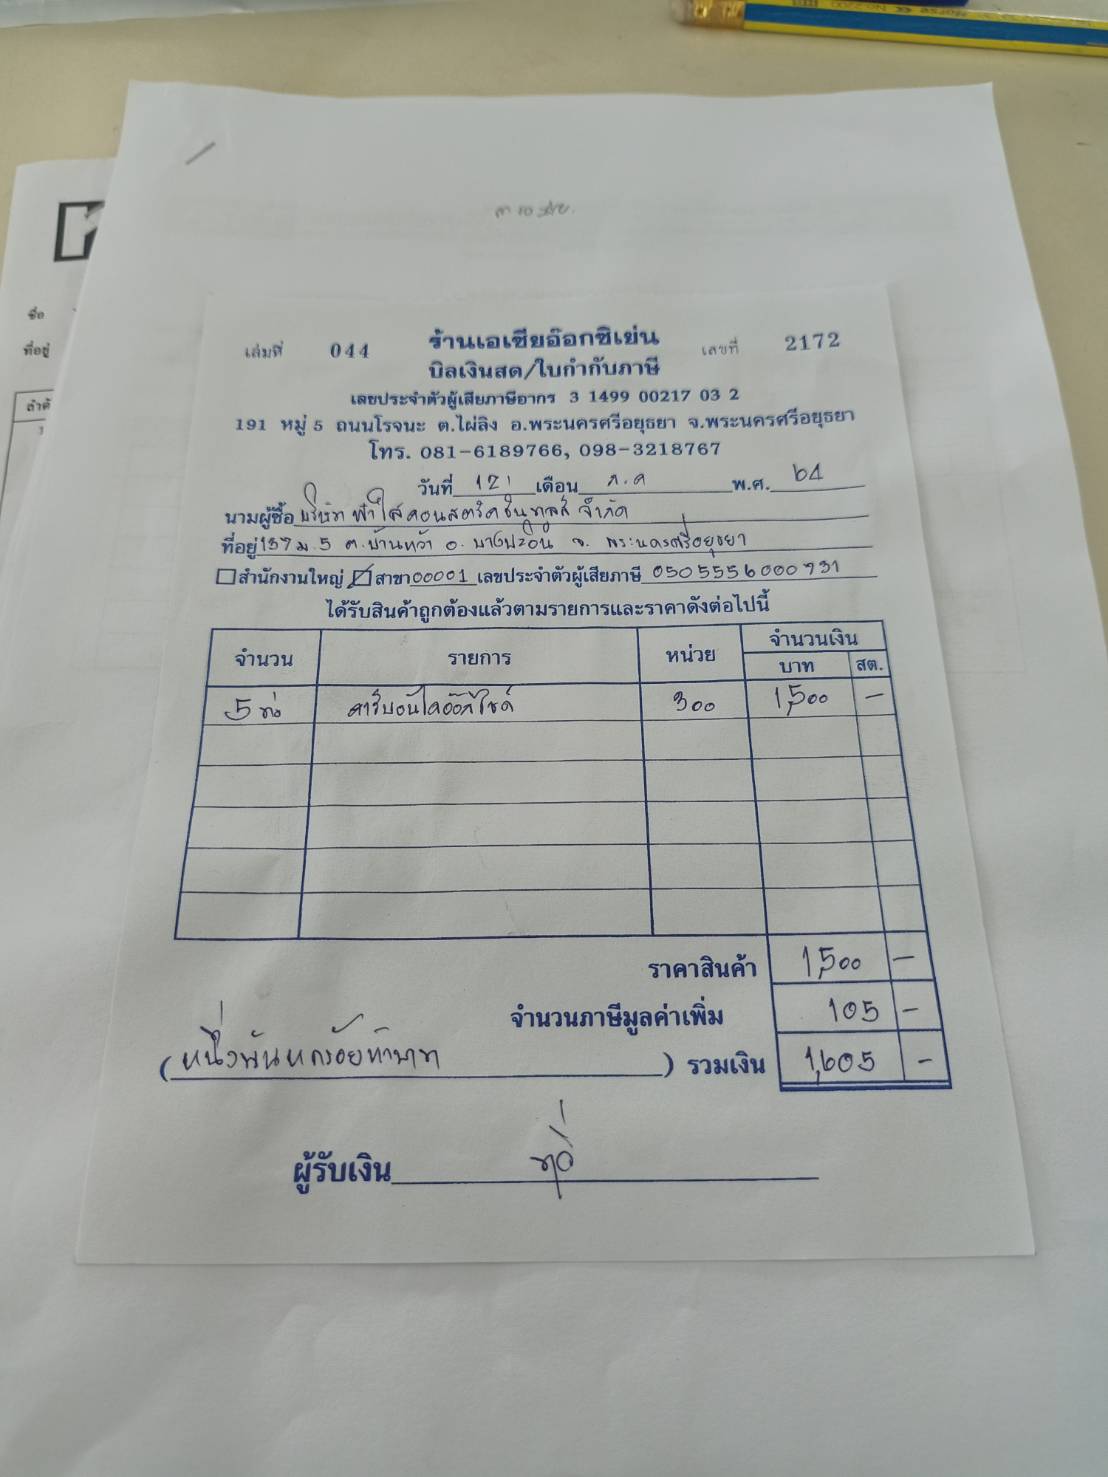 ชื่อ
ที่อยู่
ลำดั
1
เล่มที่ 044 ร้านเอเซียอ๊อกซิเย่น เลขที่ 2172
บิลเงินสด/ใบกำกับภาษี
เลขประจำตัวผู้เสียภาษีอากร 3 1499 00217 03 2
191 หมู่ 5 ถนนโรจนะ ต.ไผ่ลิง อ.พระนครศรีอยุธยา จ.พระนครศรีอยุธยา
โทร. 081-6189766, 098-3218767
วันที่ 12 เดือน ก.ค พ.ศ. 64
นามผู้ซื้อ บริษัท ฟ้าใสคอนสตรัคชั่นทูลส์ จำกัด
ที่อยู่ 137 ม.5 ต.บ้านหว้า อ.บางปะอิน จ. พระนครศรีอยุธยา
สำนักงานใหญ่ สาขา 00001 เลขประจำตัวผู้เสียภาษี 0505556000731
ได้รับสินค้าถูกต้องแล้วตามรายการและราคาดังต่อไปนี้
จำนวน รายการ หน่วย จำนวนเงิน
บาท สต.
5 ท่อ คาร์บอนไดอ๊อกไซด์ 300 1,500 -
ราคาสินค้า 1,500 -
จำนวนภาษีมูลค่าเพิ่ม 105 -
(หนึ่งพันหกร้อยห้าบาท) รวมเงิน 1,605 -
ผู้รับเงิน